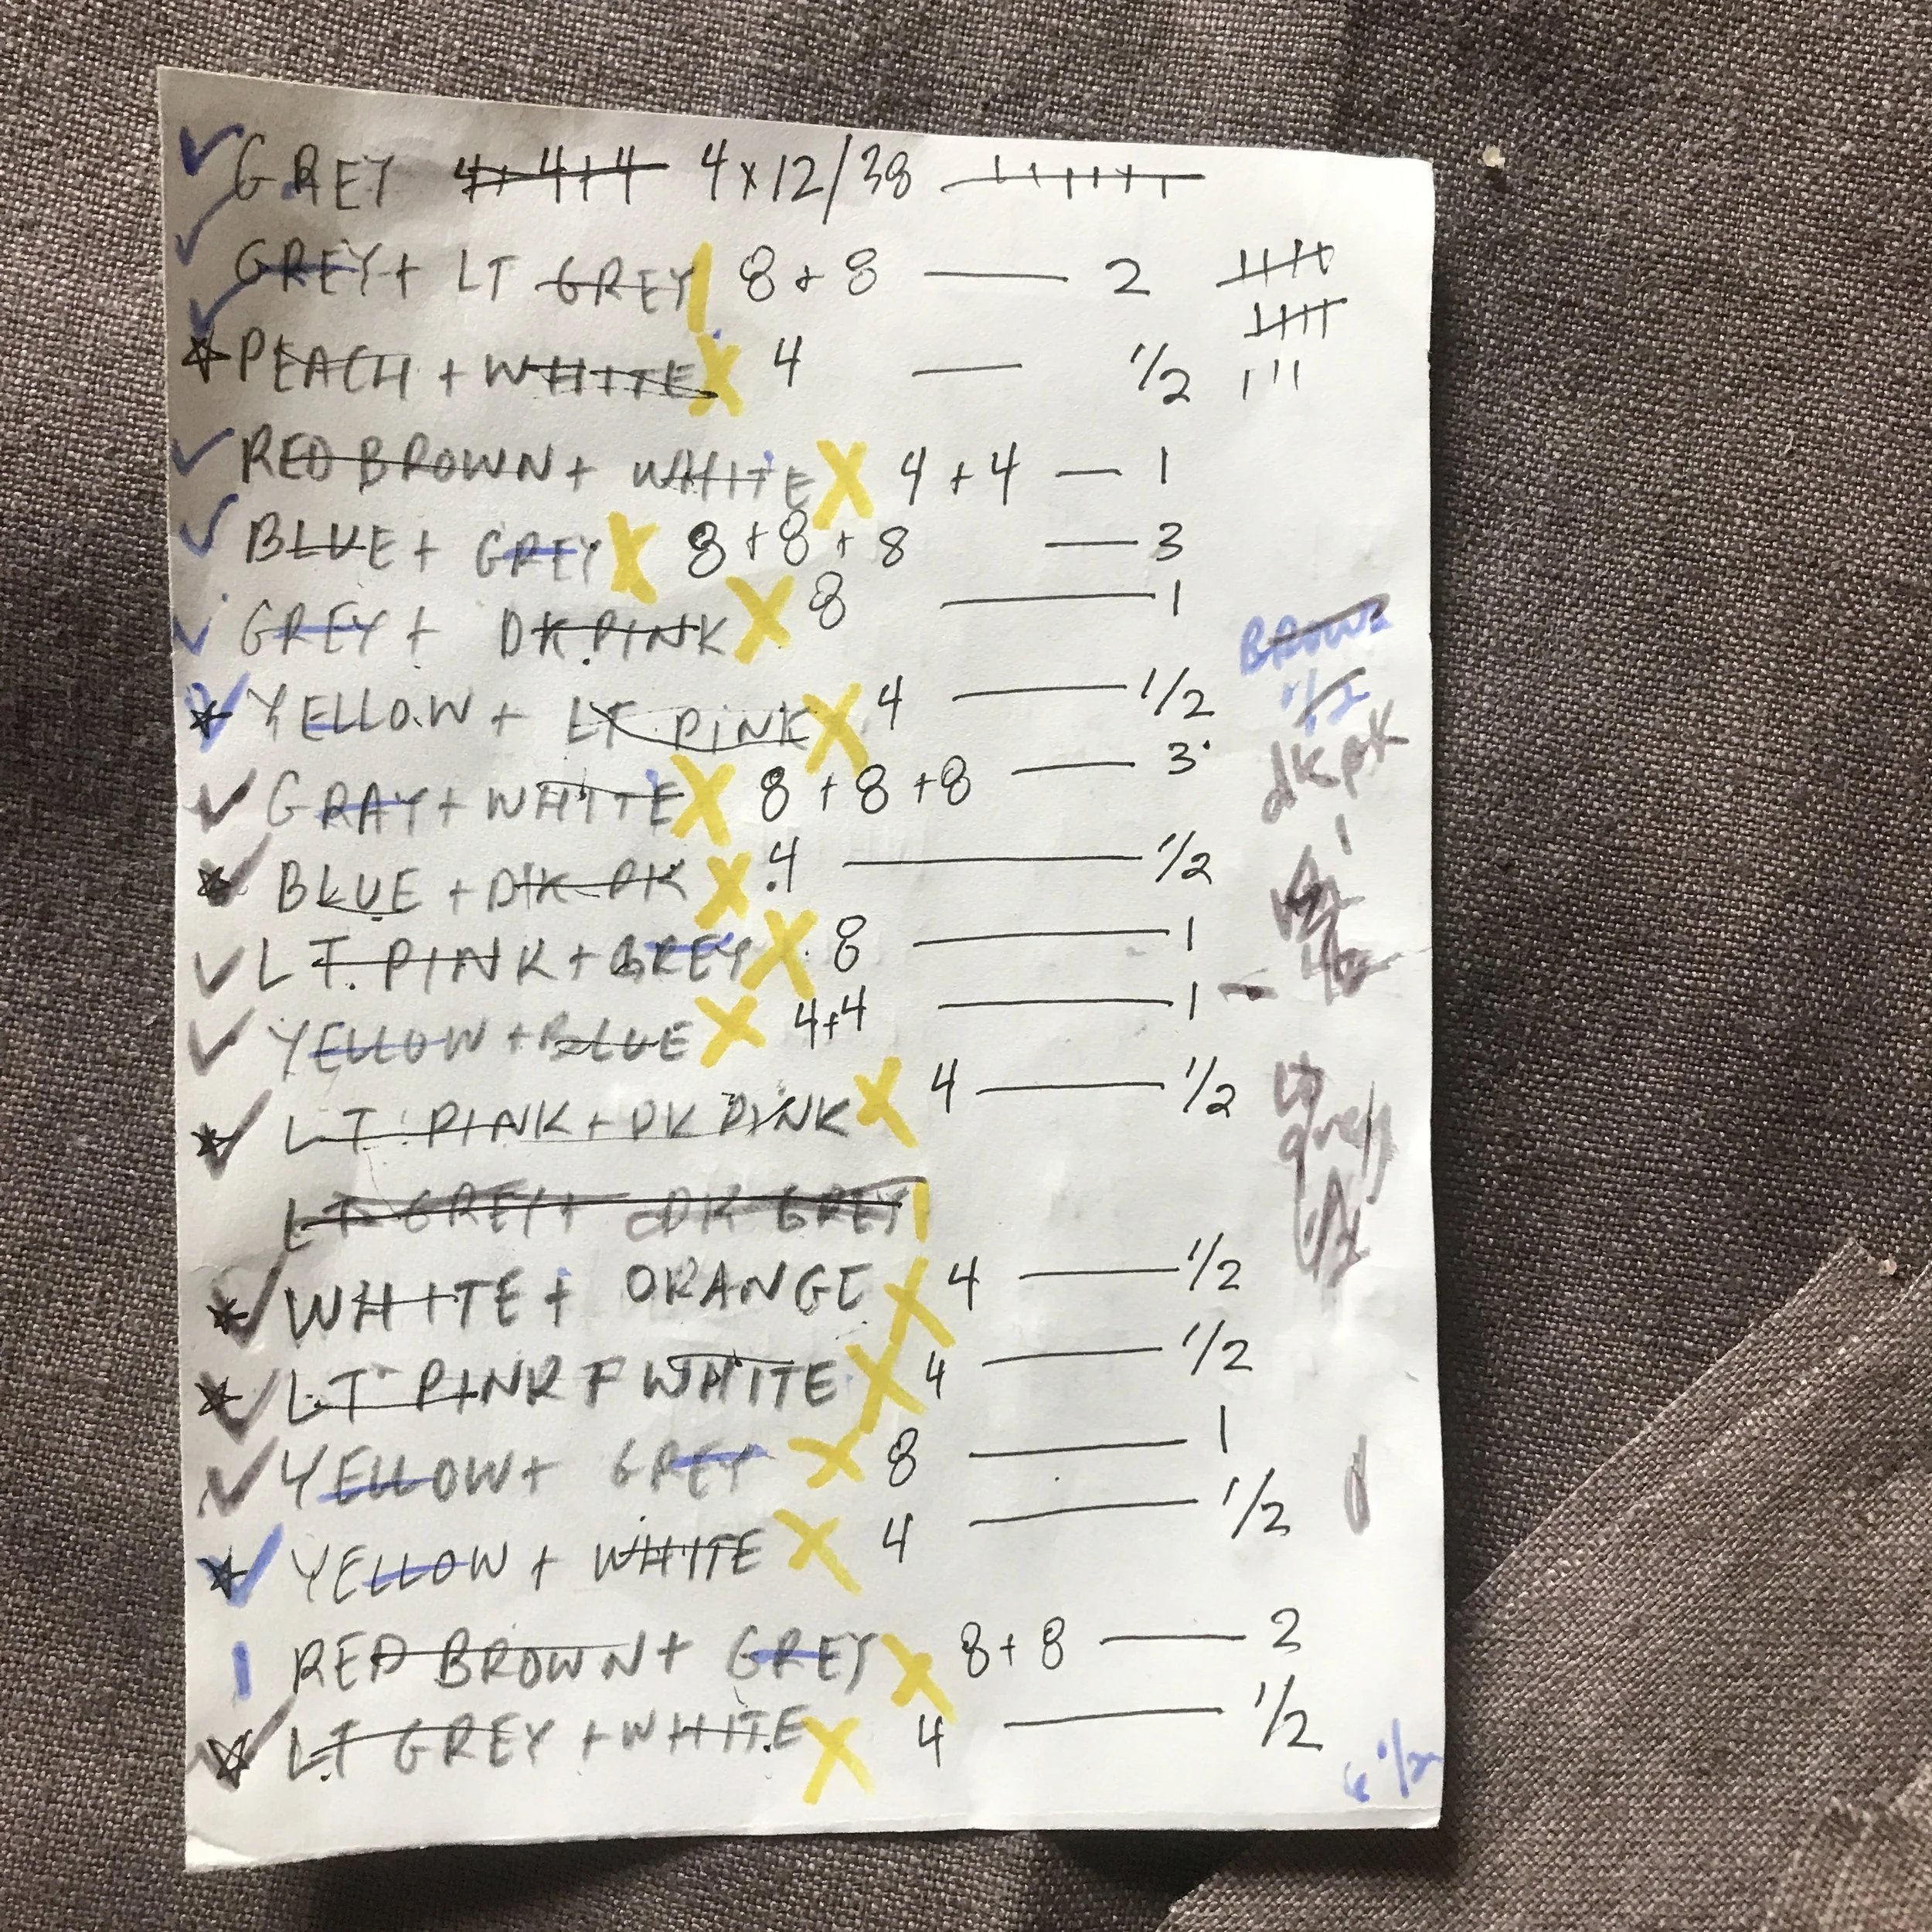 GREY 4+4+4 4x12/38
GREY + LT GREY 8 + 8 — 2
PEACH + WHITE X 4 — 1/2
RED BROWN + WHITE X 4 + 4 — 1
BLUE + GREY X 8 + 8 + 8 — 3
GREY + DK.PINK X 8 — 1
BROWN
YELLOW + LT PINK X 4 — 1/2
1/2
GRAY + WHITE X 8 + 8 + 8 — 3
dk pk
1
BLUE + DK PK X 4 — 1/2
LT. PINK + GREY X 8 — 1
YELLOW + BLUE X 4+4 — 1
LT PINK + DK PINK X 4 — 1/2
LT grey
LT GREY + DK GREY
WHITE + ORANGE X 4 — 1/2
LT PINK + WHITE X 4 — 1/2
YELLOW + GREY X 8 — 1
YELLOW + WHITE X 4 — 1/2
RED BROWN + GREY X 8 + 8 — 2
LT GREY + WHITE X 4 — 1/2